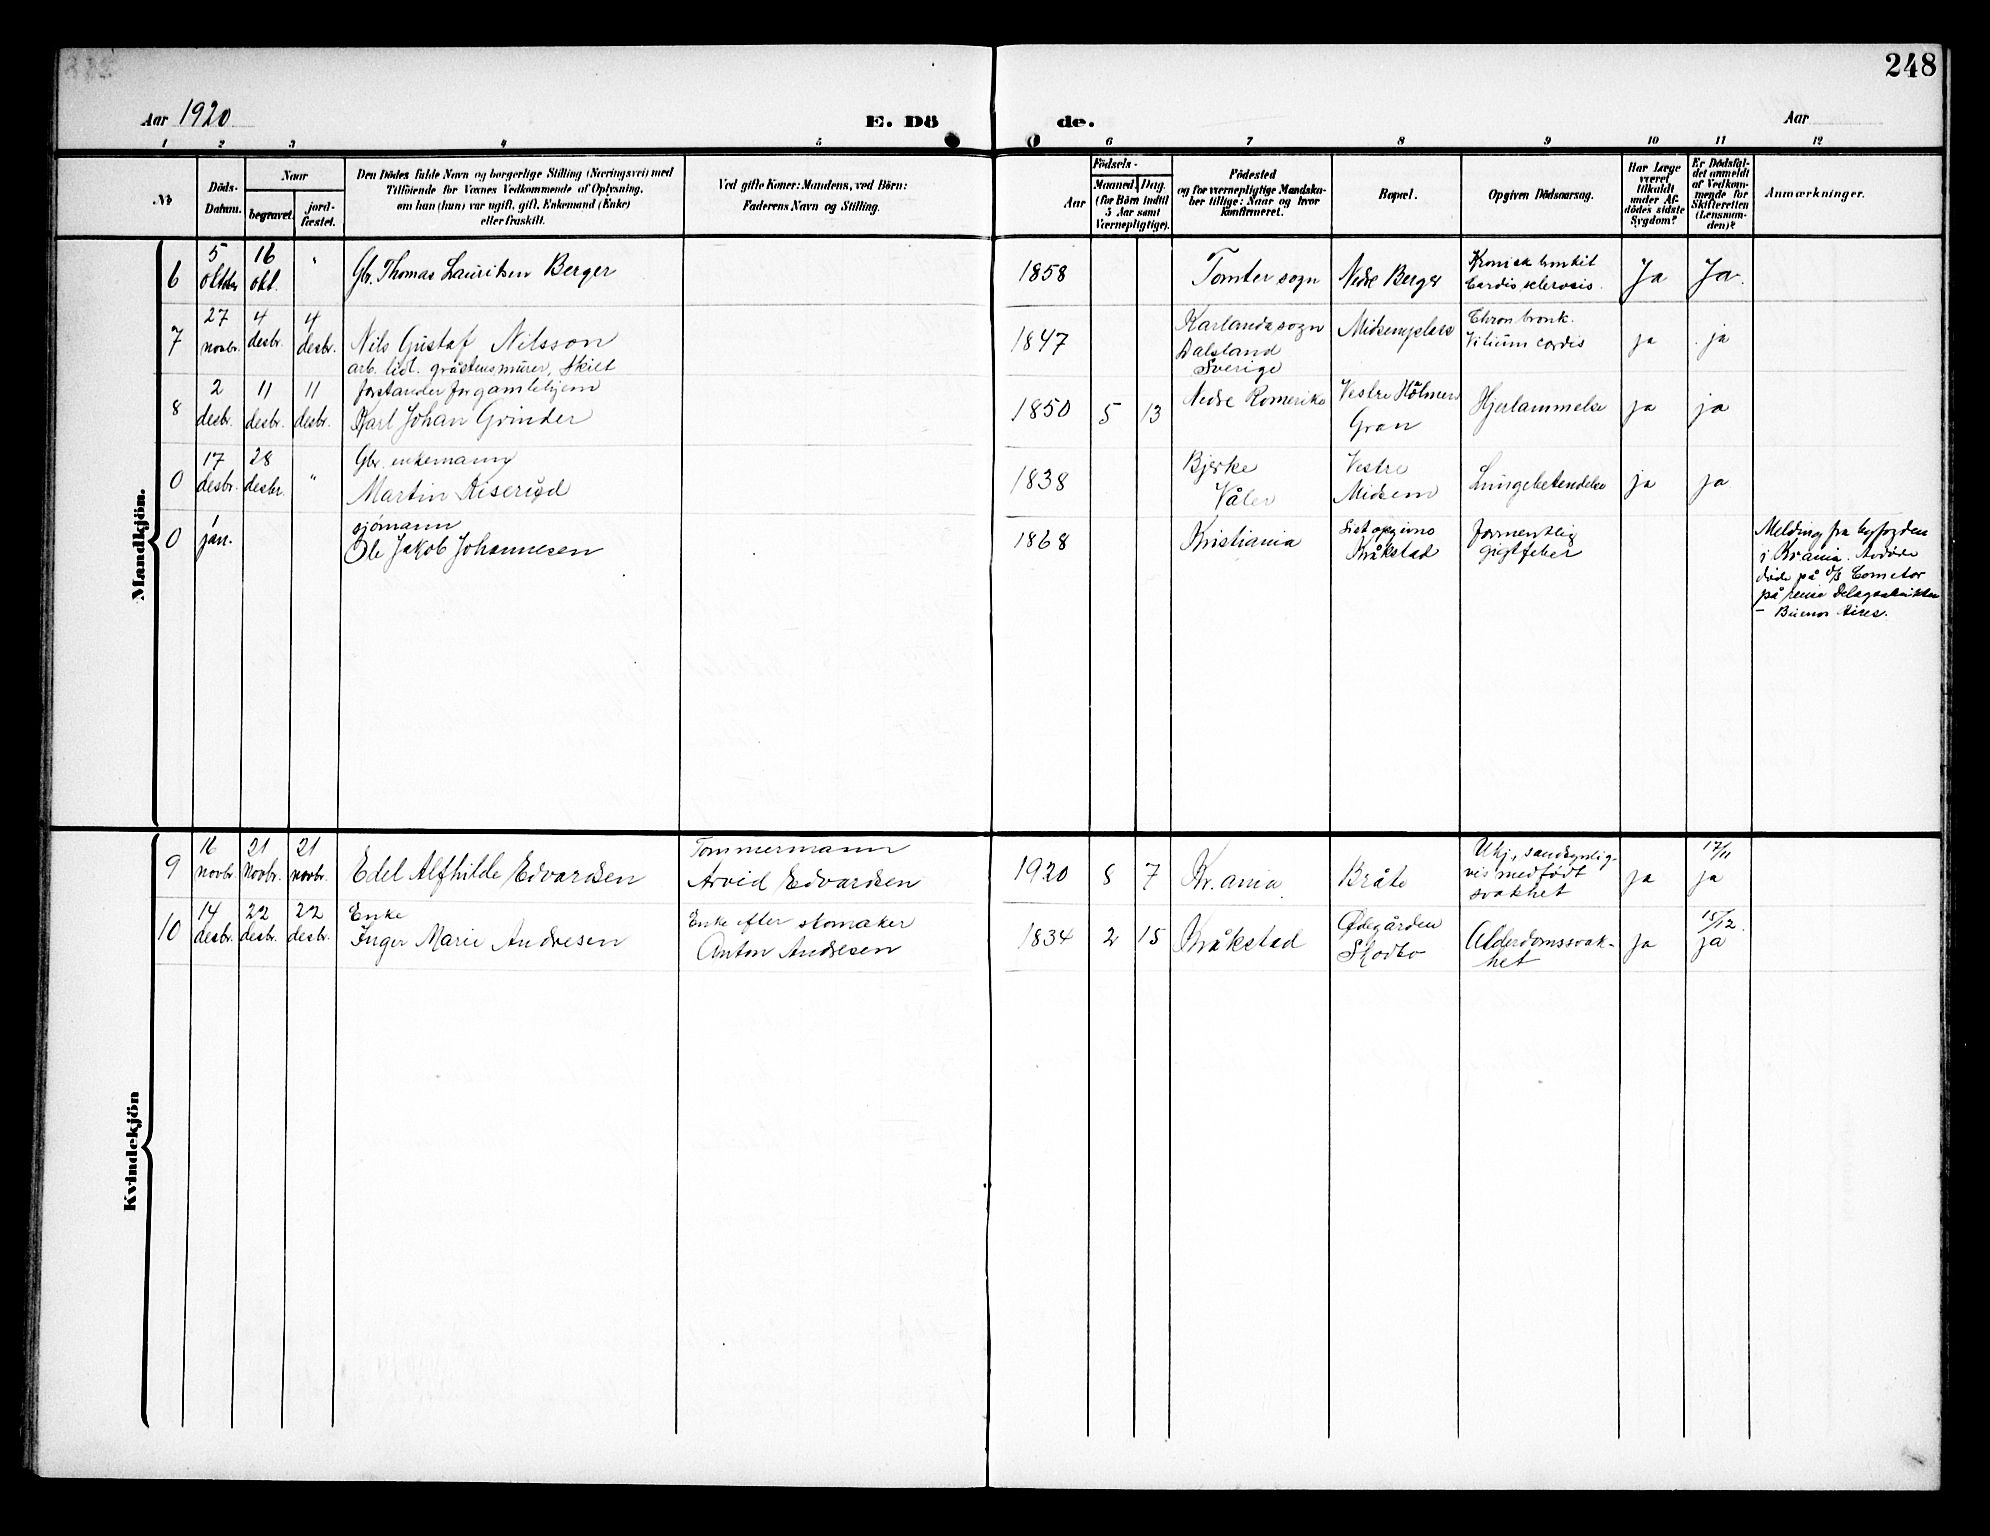 248
Aar 1920
E. Dö
de.
Aar
1 2 3 4 5 6 7 8 9 10 11 12
№
Döds-
Datum.
Naar
begravet.
jord-
fæstet.
Den Dödes fulde Navn og borgerlige Stilling (Næringsvei) med
Tilföiende for Voxnes Vedkommende af Oplysning,
om han (hun) var ugift, gift, Enkemand (Enke)
eller fraskilt.
Ved gifte Koner: Mandens, ved Börn:
Faderens Navn og Stilling.
Födsels-
Aar
Maaned. Dag.
(for Börn indtil
5 Aar samt
Værnepligtige).
Födested
og for værnepligtige Mandska-
ber tillige: Naar og hvor
konfirmeret.
Bopæl.
Opgiven Dödsaarsag.
Har Læge
været
tilkaldt
under Af-
dödes sidste
Sygdom?
Er Dödsfal-
det anmeldt
af Vedkom-
mende for
Skifteretten
(Lensman-
den)?
Anmærkninger.
Mandkjön.
6
5
oktober
16
okt.
"
Gbr. Thomas Lauritsen Berger
1858
Tomter sogn
Nedre Berger
Kronisk bronkit
Cardio sclerosis.
Ja
Ja.
7
27
novbr.
4
desbr.
4
desbr.
Nils Gustaf Nilsson
arb. tidl. gråstensmurer, skilt
1847
Karlanda sogn
Dalsland
Sverige
Chron bronk.
Vitium cordis
ja
ja
8
2
desbr.
11
desbr.
11
desbr.
forstander for gamlehjem
Karl Johan Grinder
1850
5
13
Nedre Romerike
Vestre Holmen
Gran
Hjertelammelse
ja
ja
0
17
desbr.
28
desbr.
"
Gbr. enkemann
Martin Diserud
1838
Bjerke
Våler
Vestre
Midsem
Lungebetendelse
ja
ja
0
1
jan.
sjömann
Ole Jakob Johannesen
1868
Kristiania
Sist opgivne
Kråkstad
formentlig
gigtfeber
Melding fra byfogden
i Kr.ania. Avdöde
döde på d/s Cometor
på reise
– Buenos Aires.
Kvindekjön
9
16
novbr.
21
novbr.
21
novbr.
Edel Alfhilde Edvardsen
Tømmermann
Arvid Edvardsen
1920
8
7
Kr.ania
Bråte
Ukj., sandsynlig-
vis medfödt
svakhet
ja
17/11
ja
10
14
desbr.
22
desbr.
22
desbr.
Enke
Inger Marie Andresen
Enke efter skomaker
Anton Andresen
1834
2
15
Kråkstad
Ødegården
Skodbo
Alderdomssvak-
het
ja
15/12.
ja